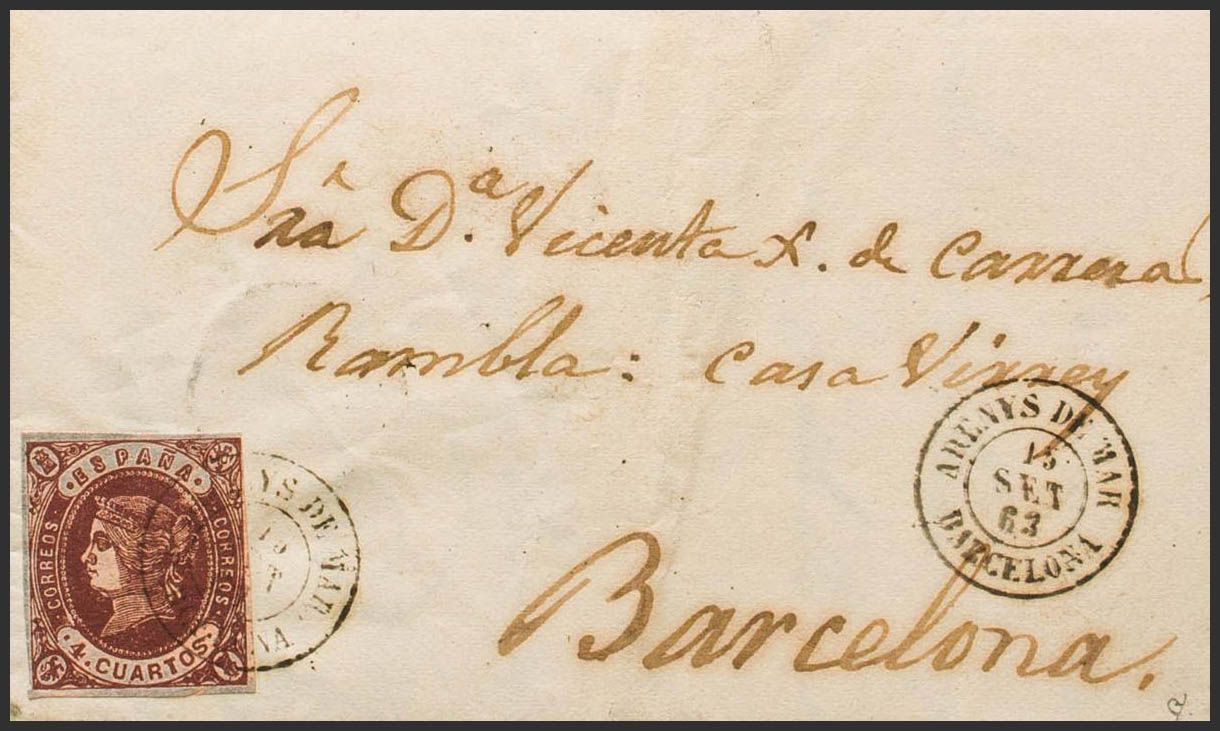 Sra Dª. Vicenta X. de Carrera
Rambla: Casa Virrey
Barcelona.
ESPAÑA
CORREOS
CORREOS
4. CUARTOS.
YS DE MAR
NA
ARENYS DE MAR
15
SET
63
BARCELONA